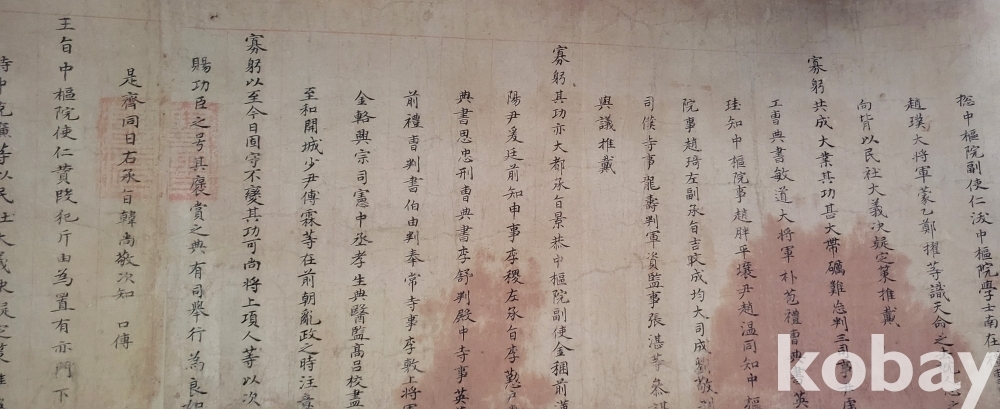 摠中樞院副使仁沃中樞院學士南在
趙璞大將軍蒙乙鄭擢等識天命之
向皆以民社大義决疑定策推戴
寡躬共成大業其功甚大帶礪難忘判三司事
工曹典書敏道大將軍朴苞禮曹典書
珪知中樞院事趙胖平壤尹趙温同知中樞
院事趙琦左副承旨吉旼成均大司成劉敬
司僕寺事龍壽判軍資監事張湛等叅
與議推戴
寡躬其功亦大都承旨景恭中樞院副使金稛前漢
陽尹爰廷前知申事李稷左承旨李懃
典書思忠刑曹典書李舒判殿中寺事英
前禮曹判書伯由判奉常寺事李敷上將軍
金輅興宗司憲中丞孝生典醫監高呂校書
至和開城少尹傅霖等在前朝亂政之時注意
寡躬以至今日固守不變其功可尚將上項人等以次
賜功臣之号其襃賞之典有司舉行為良如
是齊同日右承旨韓尚敬次知 口傳
王旨中樞院使仁賛段犯斤由為置有亦門下
侍中克廉等以民社大義决疑定策推
kobay